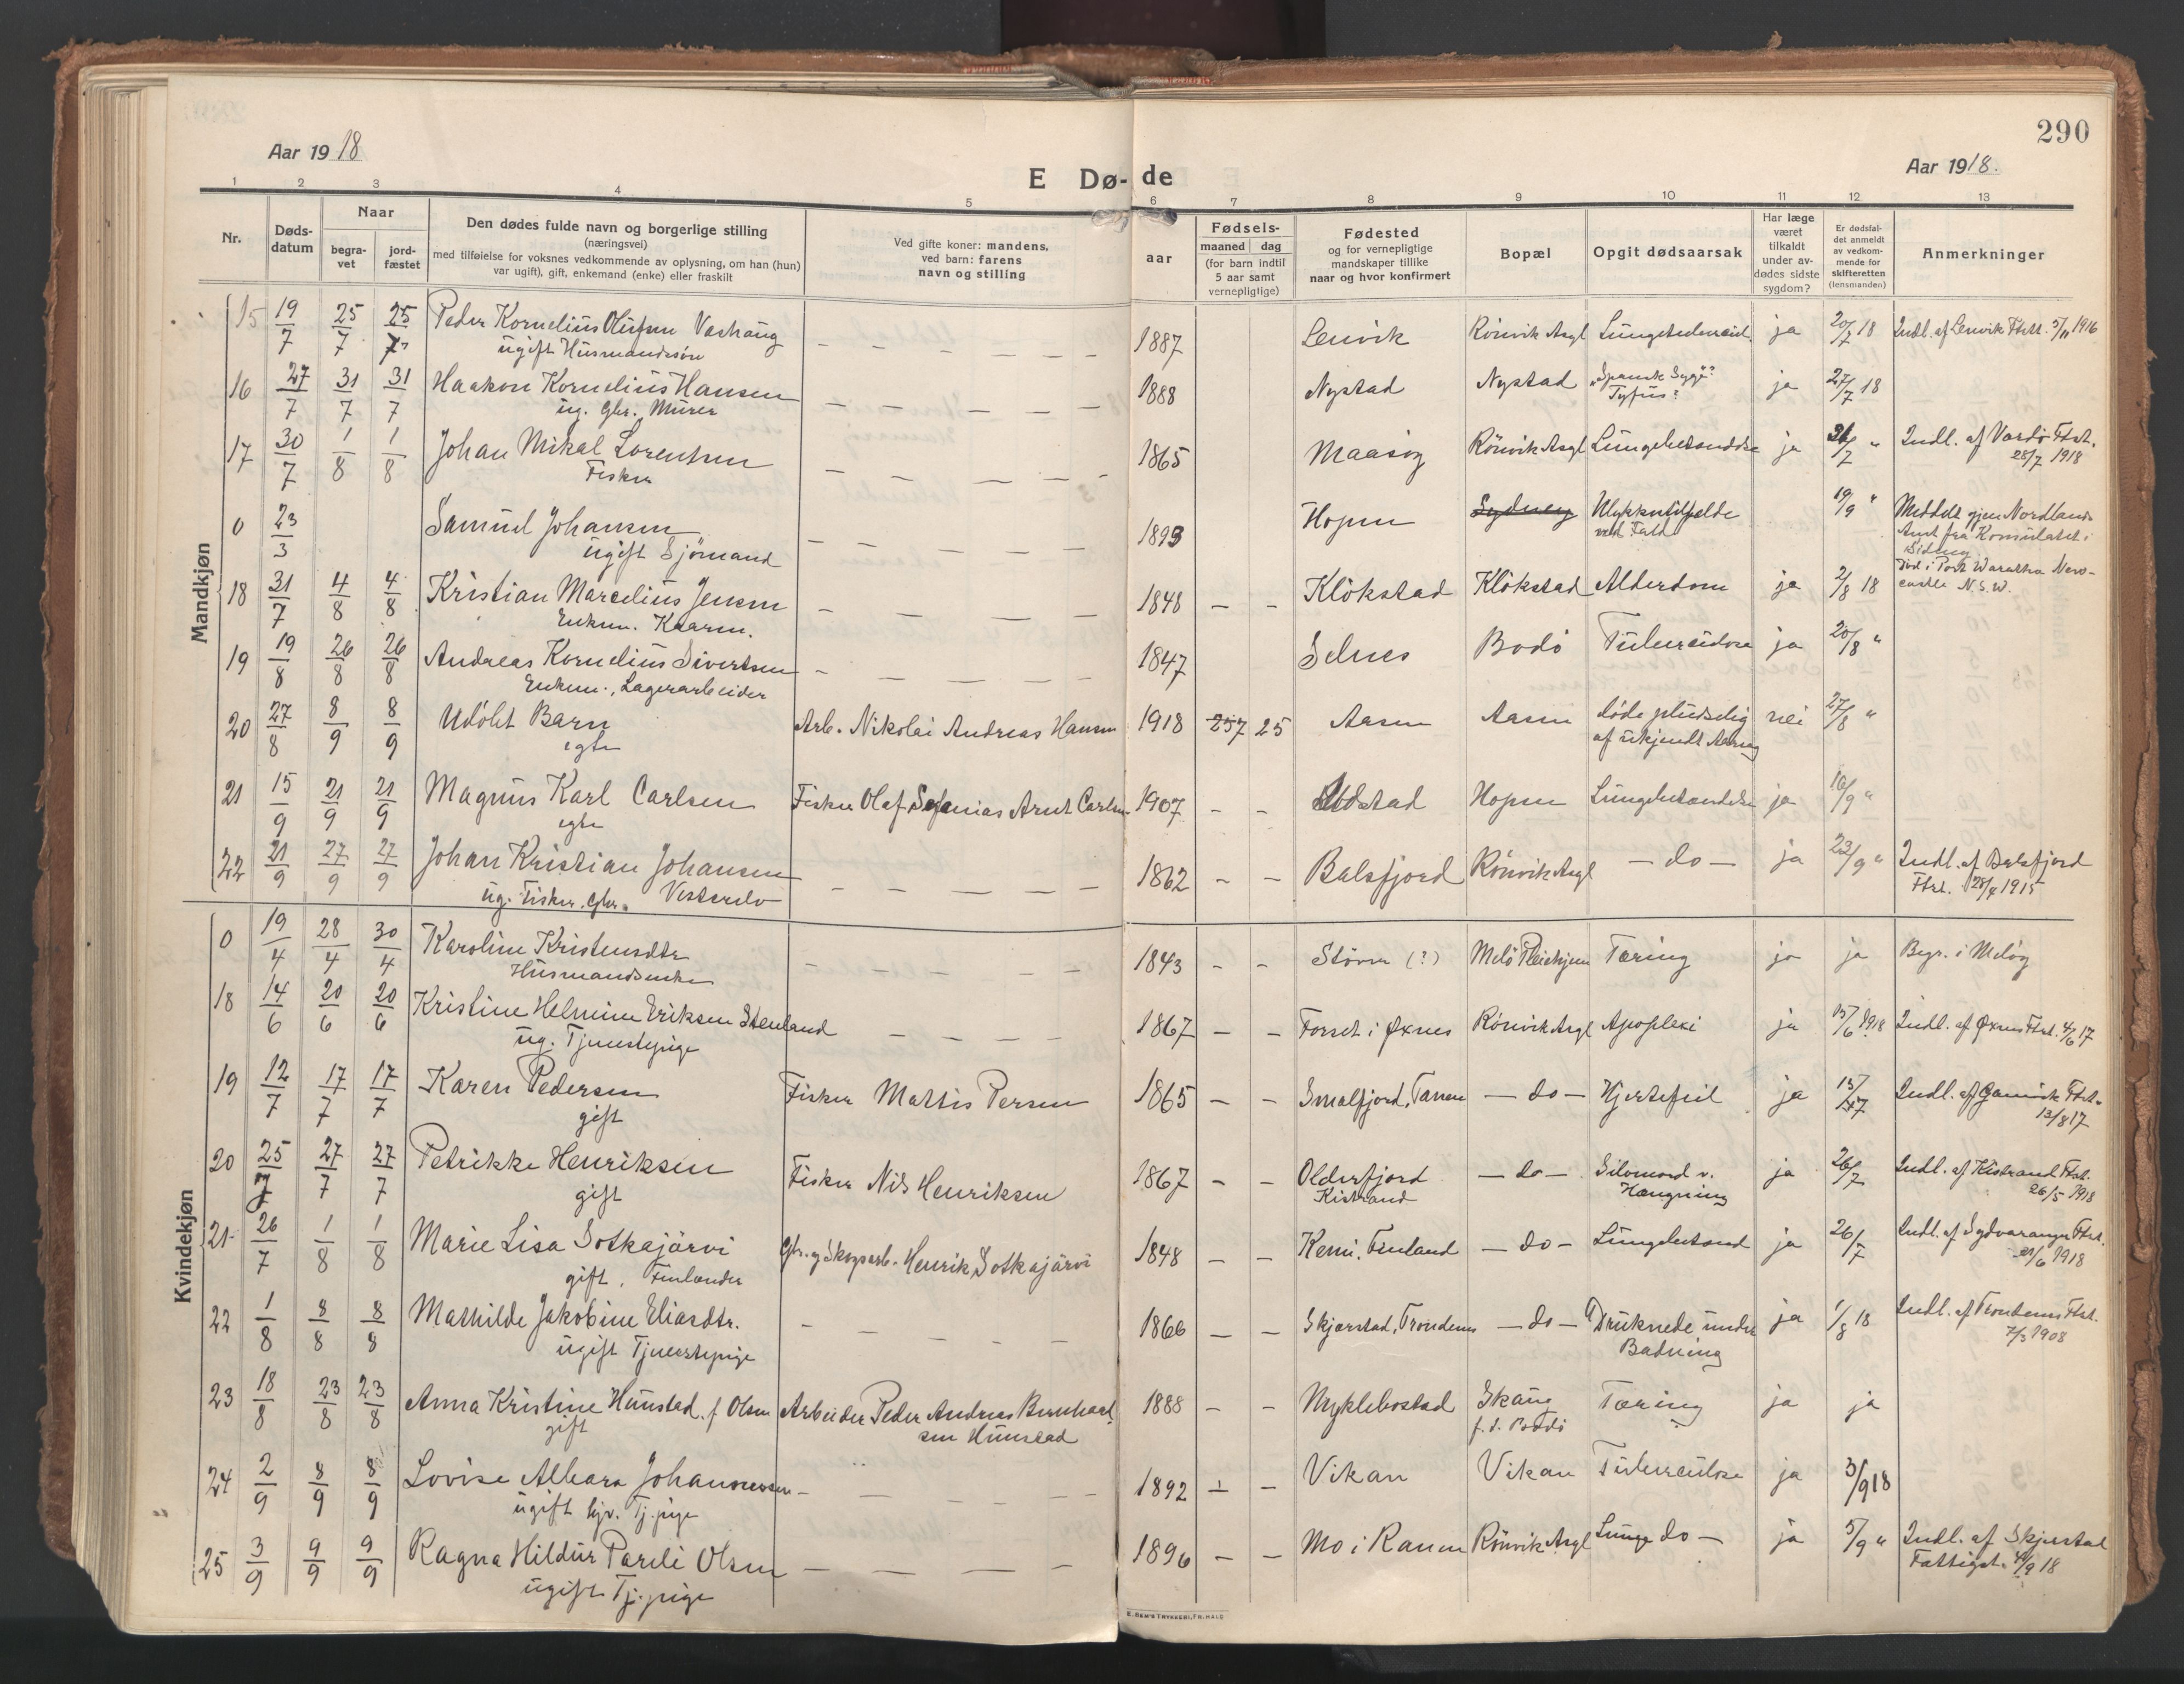 290
Aar 1918
Aar 1918.
E Dø- de
1 2 3 4 5 6 7 8 9 10 11 12 13
Nr.
Døds-
datum
Naar
begra-
vet
jord-
fæstet
Den dødes fulde navn og borgerlige stilling
(næringsvei)
med tilføielse for voksnes vedkommende av oplysning, om han (hun)
var ugift), gift, enkemand (enke) eller fraskilt
Ved gifte koner: mandens,
ved barn: farens
navn og stilling
aar
Fødsels-
maaned dag
(for barn indtil
5 aar samt
vernepligtige)
Fødested
og for vernepligtige
mandskaper tillike
naar og hvor konfirmert
Bopæl
Opgit dødsaarsak
Har læge
været
tilkaldt
under av-
dødes sidste
sygdom?
Er dødsfal-
det anmeldt
av vedkom-
mende for
skifteretten
(lensmanden)
Anmerkninger
Mandkjøn
15 19/7 25/7 25/7 Peder Kornelius Olufsen Vashaug — — — — — 1887 Lenvik Rönvik Asyl ja 20/7 18 Indl. af Lenvik Ftst. 5/11 1916
ugift Husmandssön
16 27/7 31/7 31/7 Haakon Kornelius Hansen — — — — — 1888 Nystad Nystad "Spansk Syge"? ja 27/7 18
ug. Gbr. Murer Tyfus?
17 30/7 1/8 1/8 Johan Mikal Lorentsen — — — — — 1865 Maasöy Rönvik Asyl Lungebetændelse ja 31/7 " Indl. af Vardö Ftst.
Fisker 28/7 1918
0 23/3 Samuel Johansen — — — — — 1893 Hopen Sydney Ulykkestilfelde 19/9 " Meddelt gjen Nordlands
ugift Sjömand ved Fald Amt fra Konsulatet i
Sidney
Död i Port Waratha New-
castle N.S.W.
18 31/7 4/8 4/8 Kristian Marcelius Jensen — — — — 1848 — — Klökstad Klökstad Alderdom ja 2/8 18
Enkem. Kaarm.
19 19/8 26/8 26/8 Andreas Kornelius Sivertsen — — — — — 1847 Selnes Bodö Tuberculose ja 20/8 "
Enkem., Lagerarbeider
20 27/8 8/9 8/9 Udöbt Barn Arb. Nikolai Andreas Hansen 1918 7 25 Aasen Aasen döde pludselig nei 27/8 "
egte af ukjendt Aarsag
21 15/9 21/9 21/9 Magnus Karl Carlsen Fisker Olaf Sefanias Arnt Carlsen 1907 — — Hopen Lungebetændelse ja 16/9 "
egte
22 21/9 27/9 27/9 Johan Kristian Johansen — — — — — 1862 — — Balsfjord Rönvik Asyl — do — ja 23/9 " Indl. af Balsfjord
ug. Fisker. Gbr. Vesterelv Ftst. 1915
Kvindekjøn
0 19/4 28/4 30/4 Karoline Kristensdtr — — — — — 1843 — — Stören (?) Melö Pleiehjem Tæring ja ja Begr. i Melöy
Husmandsenke
18 14/6 20/6 20/6 Kristine Helmine Eriksen Stenland — — — — 1867 — — Forset i Øxnes Rönvik Asyl Apoplexi ja 15/6 1918 Indl. af Øxnes Ftst. 4/6 17
ug. Tjenestepige
19 12/7 17/7 17/7 Karen Pedersen Fisker Mattis Persen 1865 — — Smalfjord, Tanen — do — Hjertefeil ja 13/7 Indl. af Gamvik Ftst.
gift 13/8 17
20 25/7 27/7 27/7 Petrikke Henriksen Fisker Nils Henriksen 1867 — — Olderfjord — do — Selvmord v. ja 26/7 Indl. af Kistrand Ftst.
gift Kistrand Hængning 26/5 1918
21 26/7 1/8 1/8 Marie Lisa Sotkajärvi Gbr. og Skogsarb. Henrik Sotkajärvi 1848 — — Kemi, Finland — do — Lungebetænd ja 26/7 Indl. af Sydvaranger Ftst.
gift. Finlænder 1918
22 1/8 8/8 8/8 Mathilde Jakobine Eliasdtr. — — — — — 1866 — — Skjærstad, Trondenes — do — Druknede under ja 1/8 18 Indl. af Trondenes Ftst.
ugift Tjenestepige Badning 7/3 1908
23 18/8 23/8 23/8 Anna Kristine Hunstad f. Olsen Arbeider Peder Andreas Bernhard- 1888 — — Myklebostad Skaug Tæring ja ja
gift sen Hunstad f. t. Bodö
24 2/9 8/9 8/9 Lovise Albara Johannessen — — — — — 1892 — — Vikan Vikan Tuberculose ja 3/9 18
ugift hjv. Tj.pige
25 3/9 9/9 9/9 Ragna Hildur Pareli Olsen — — — — 1896 — — Mo i Ranen Rönvik Asyl Lunge do — ja 5/9 " Indl. af Skjerstad
ugift Tj.pige Fattigst. 4/9 18
E. BEM'S TRYKKERI, FR. HALD